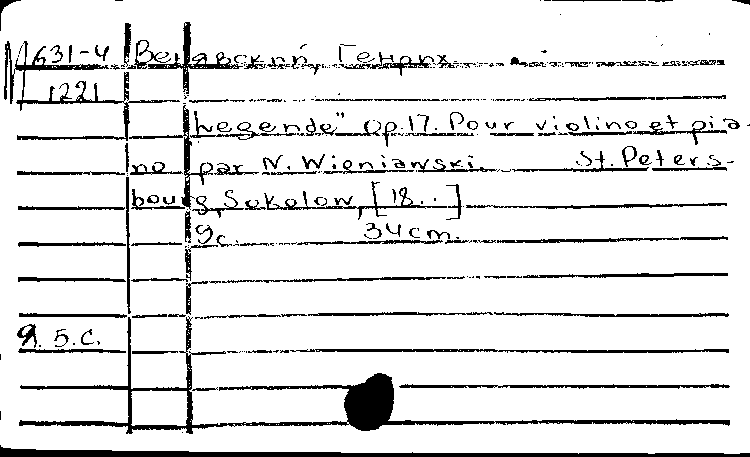 M631-4 Венявский, Генрих
1221
Legende" Op.17. Pour violino et pia-
no par N. Wieniawski. St. Peters-
bourg, Sokolow, [18..]
9с. 34cm.
Я. 5.С.